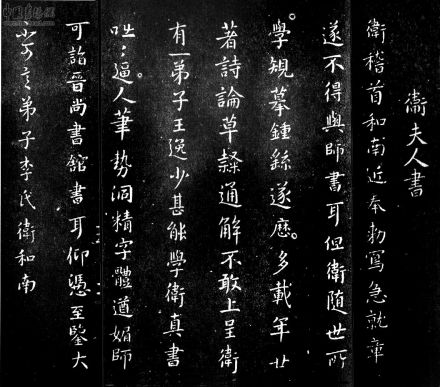 衛夫人書
衛稽首和南近奉勅寫急就章
遂不得與師書耳但衛随世所
學規摹鍾繇遂歷多載年廿
著詩論草隸通解不敢上呈衛
有一弟子王逸少甚能學衛真書
咄咄逼人筆勢洞精字體遒媚師
可詣晉尚書館書耳仰憑至鑒大
不可言弟子李氏衛和南